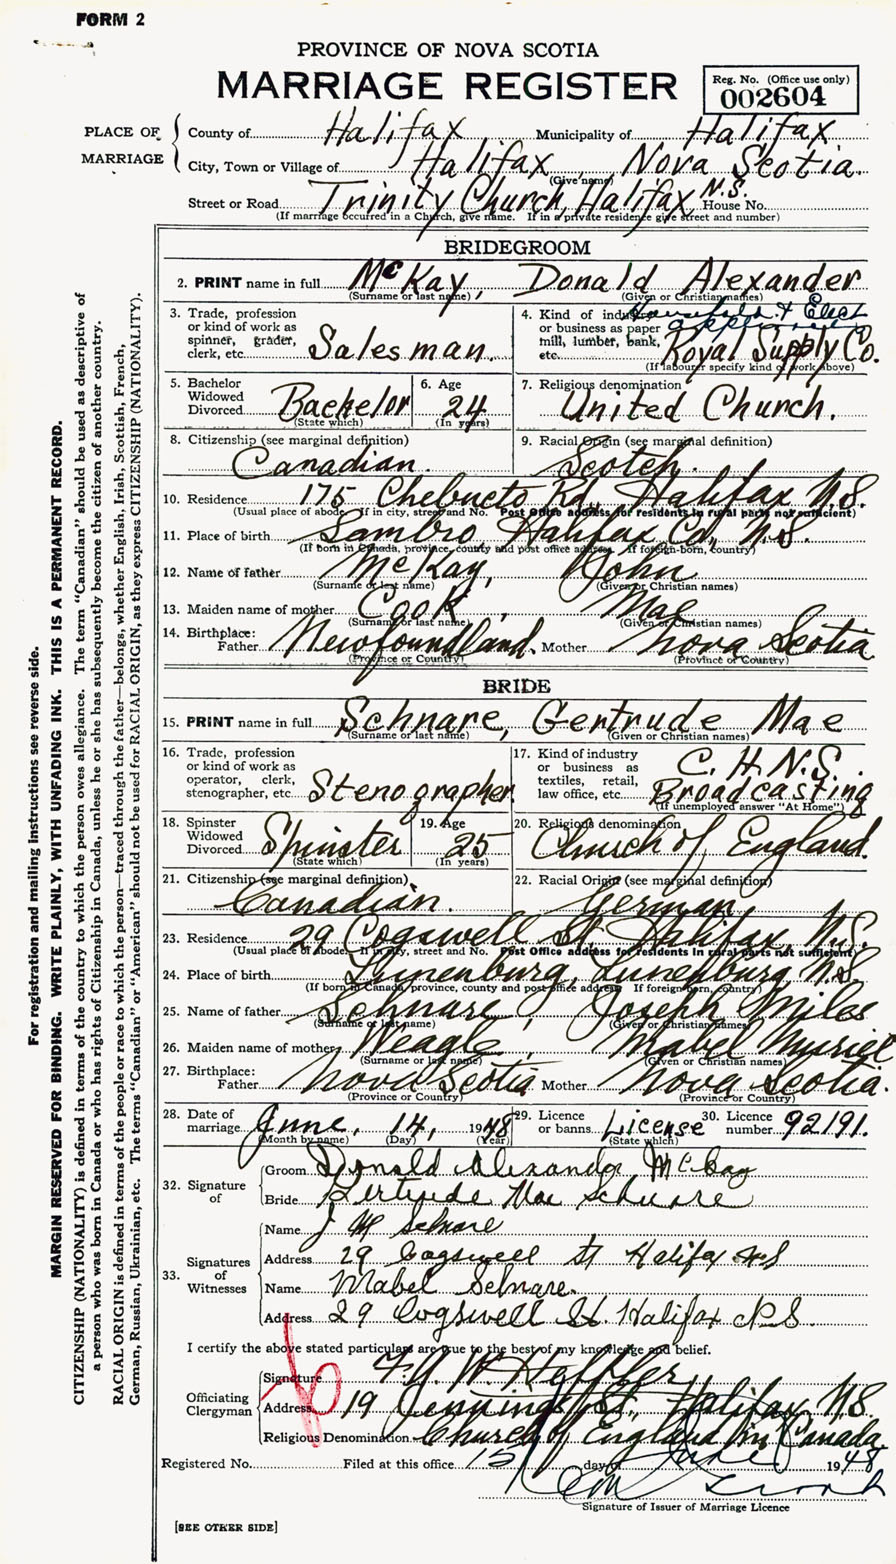 FORM 2
PROVINCE OF NOVA SCOTIA
MARRIAGE REGISTER
Reg. No. (Office use only)
002604
PLACE OF MARRIAGE
County of Halifax Municipality of Halifax
City, Town or Village of Halifax, Nova Scotia.
(Give name)
Street or Road Trinity Church, Halifax N.S. House No.
(If marriage occurred in a Church, give name. If in a private residence give street and number)
BRIDEGROOM
2. PRINT name in full McKay, Donald Alexander
(Surname or last name) (Given or Christian names)
3. Trade, profession or kind of work as spinner, grader, clerk, etc. Salesman.
4. Kind of industry or business as paper mill, lumber, bank, etc. Household & Elect appliances Royal Supply Co.
(If labourer specify kind of work above)
5. Bachelor Widowed Divorced Bachelor
(State which)
6. Age 24
(In years)
7. Religious denomination United Church.
8. Citizenship (see marginal definition) Canadian.
9. Racial Origin (see marginal definition) Scotch.
10. Residence 175 Chebucto Rd, Halifax N.S.
(Usual place of abode. If in city, street and No. Post Office address for residents in rural parts not sufficient)
11. Place of birth Sambro Halifax Co, N.S.
(If born in Canada, province, county and post office address. If foreign-born, country)
12. Name of father McKay, John
(Surname or last name) (Given or Christian names)
13. Maiden name of mother Cook, Mae
(Surname or last name) (Given or Christian names)
14. Birthplace: Father Newfoundland. Mother Nova Scotia
(Province or Country) (Province or Country)
BRIDE
15. PRINT name in full Schnare, Gertrude Mae
(Surname or last name) (Given or Christian names)
16. Trade, profession or kind of work as operator, clerk, stenographer, etc. Stenographer
17. Kind of industry or business as textiles, retail, law office, etc. C.H.N.S. Broadcasting
(If unemployed answer "At Home")
18. Spinster Widowed Divorced Spinster
(State which)
19. Age 25
(In years)
20. Religious denomination Church of England.
21. Citizenship (see marginal definition) Canadian.
22. Racial Origin (see marginal definition) German.
23. Residence 29 Cogswell St Halifax N.S.
(Usual place of abode. If in city, street and No. Post Office address for residents in rural parts not sufficient)
24. Place of birth Lunenburg, Lunenburg N.S.
(If born in Canada, province, county and post office address. If foreign-born, country)
25. Name of father Schnare, Joseph Miles
(Surname or last name) (Given or Christian names)
26. Maiden name of mother Weagle, Mabel Muriel
(Surname or last name) (Given or Christian names)
27. Birthplace: Father Nova Scotia Mother Nova Scotia.
(Province or Country) (Province or Country)
28. Date of marriage June, 14, 1948
(Month by name) (Day) (Year)
29. Licence or banns License
(State which)
30. Licence number 92191.
32. Signature of
Groom Donald Alexander McKay
Bride Gertrude Mae Schnare
33. Signatures of Witnesses
Name J M Schnare
Address 29 Cogswell St Halifax NS
Name Mabel Schnare.
Address 29 Cogswell St. Halifax N.S.
I certify the above stated particulars are true to the best of my knowledge and belief.
Officiating Clergyman
Signature
Address 19 Jennings St., Halifax N.S.
Religious Denomination Church of England in Canada
Registered No. Filed at this office 15 day of June 1948
Signature of Issuer of Marriage Licence
[SEE OTHER SIDE]
For registration and mailing instructions see reverse side.
MARGIN RESERVED FOR BINDING. WRITE PLAINLY, WITH UNFADING INK. THIS IS A PERMANENT RECORD.
CITIZENSHIP (NATIONALITY) is defined in terms of the country to which the person owes allegiance. The term "Canadian" should be used as descriptive of
a person who was born in Canada or who has rights of Citizenship in Canada, unless he or she has subsequently become the citizen of another country.
RACIAL ORIGIN is defined in terms of the people or race to which the person—traced through the father—belongs, whether English, Irish, Scottish, French,
German, Russian, Ukrainian, etc. The terms "Canadian" or "American" should not be used for RACIAL ORIGIN, as they express CITIZENSHIP (NATIONALITY).